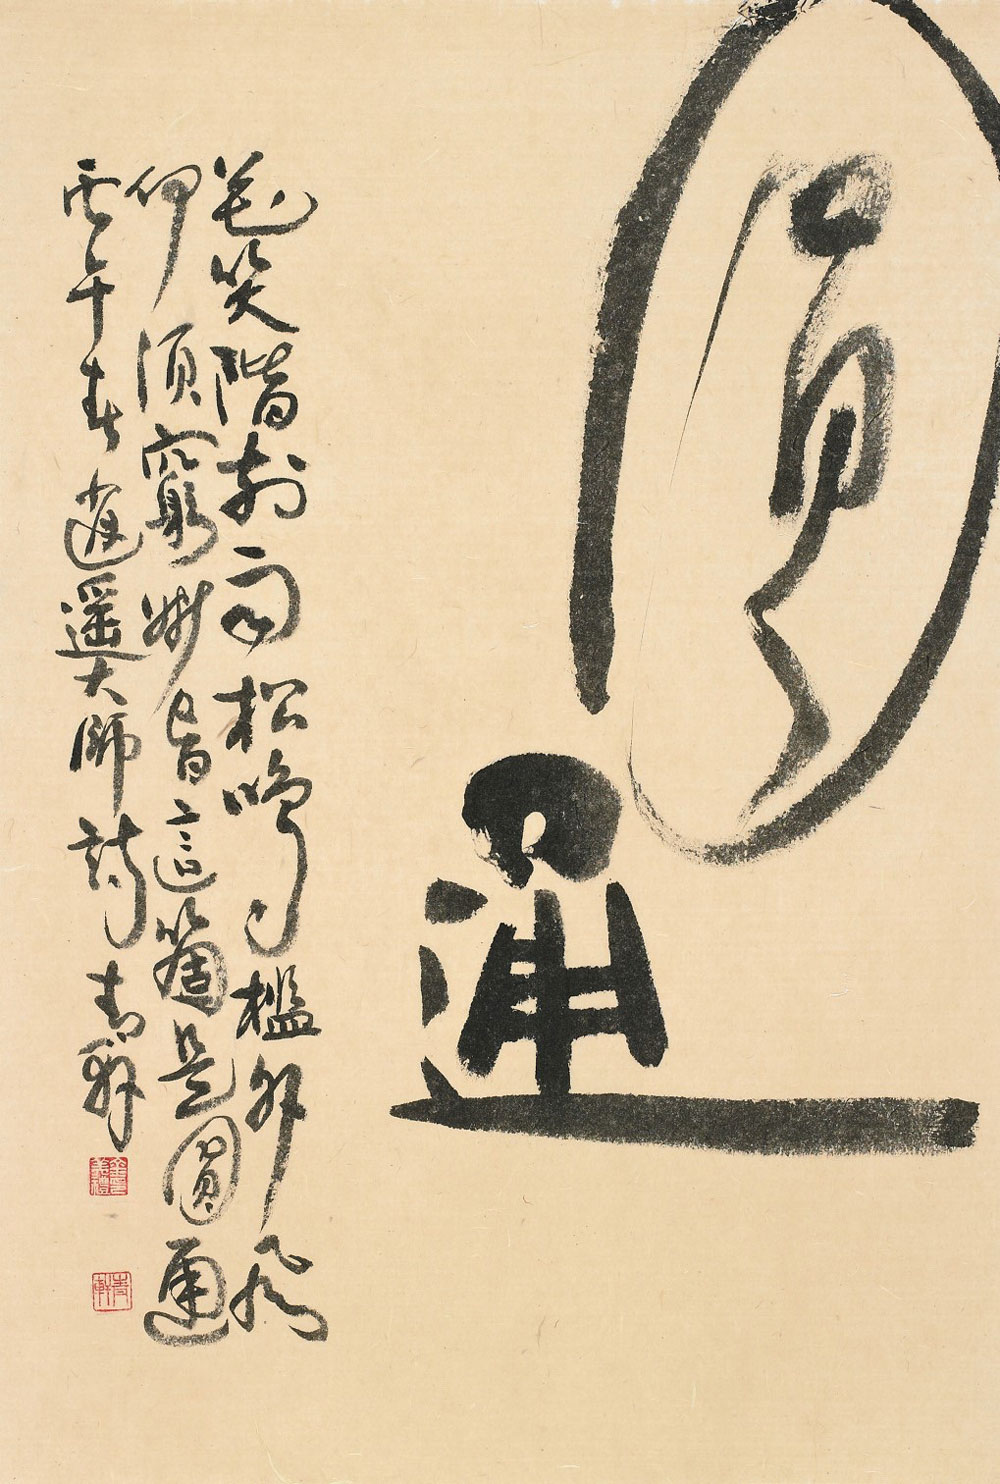 圓通
花笑階前雨松鳴檻外風
何須窮妙旨這箇是圓通
午春逍遙大師詩青軒